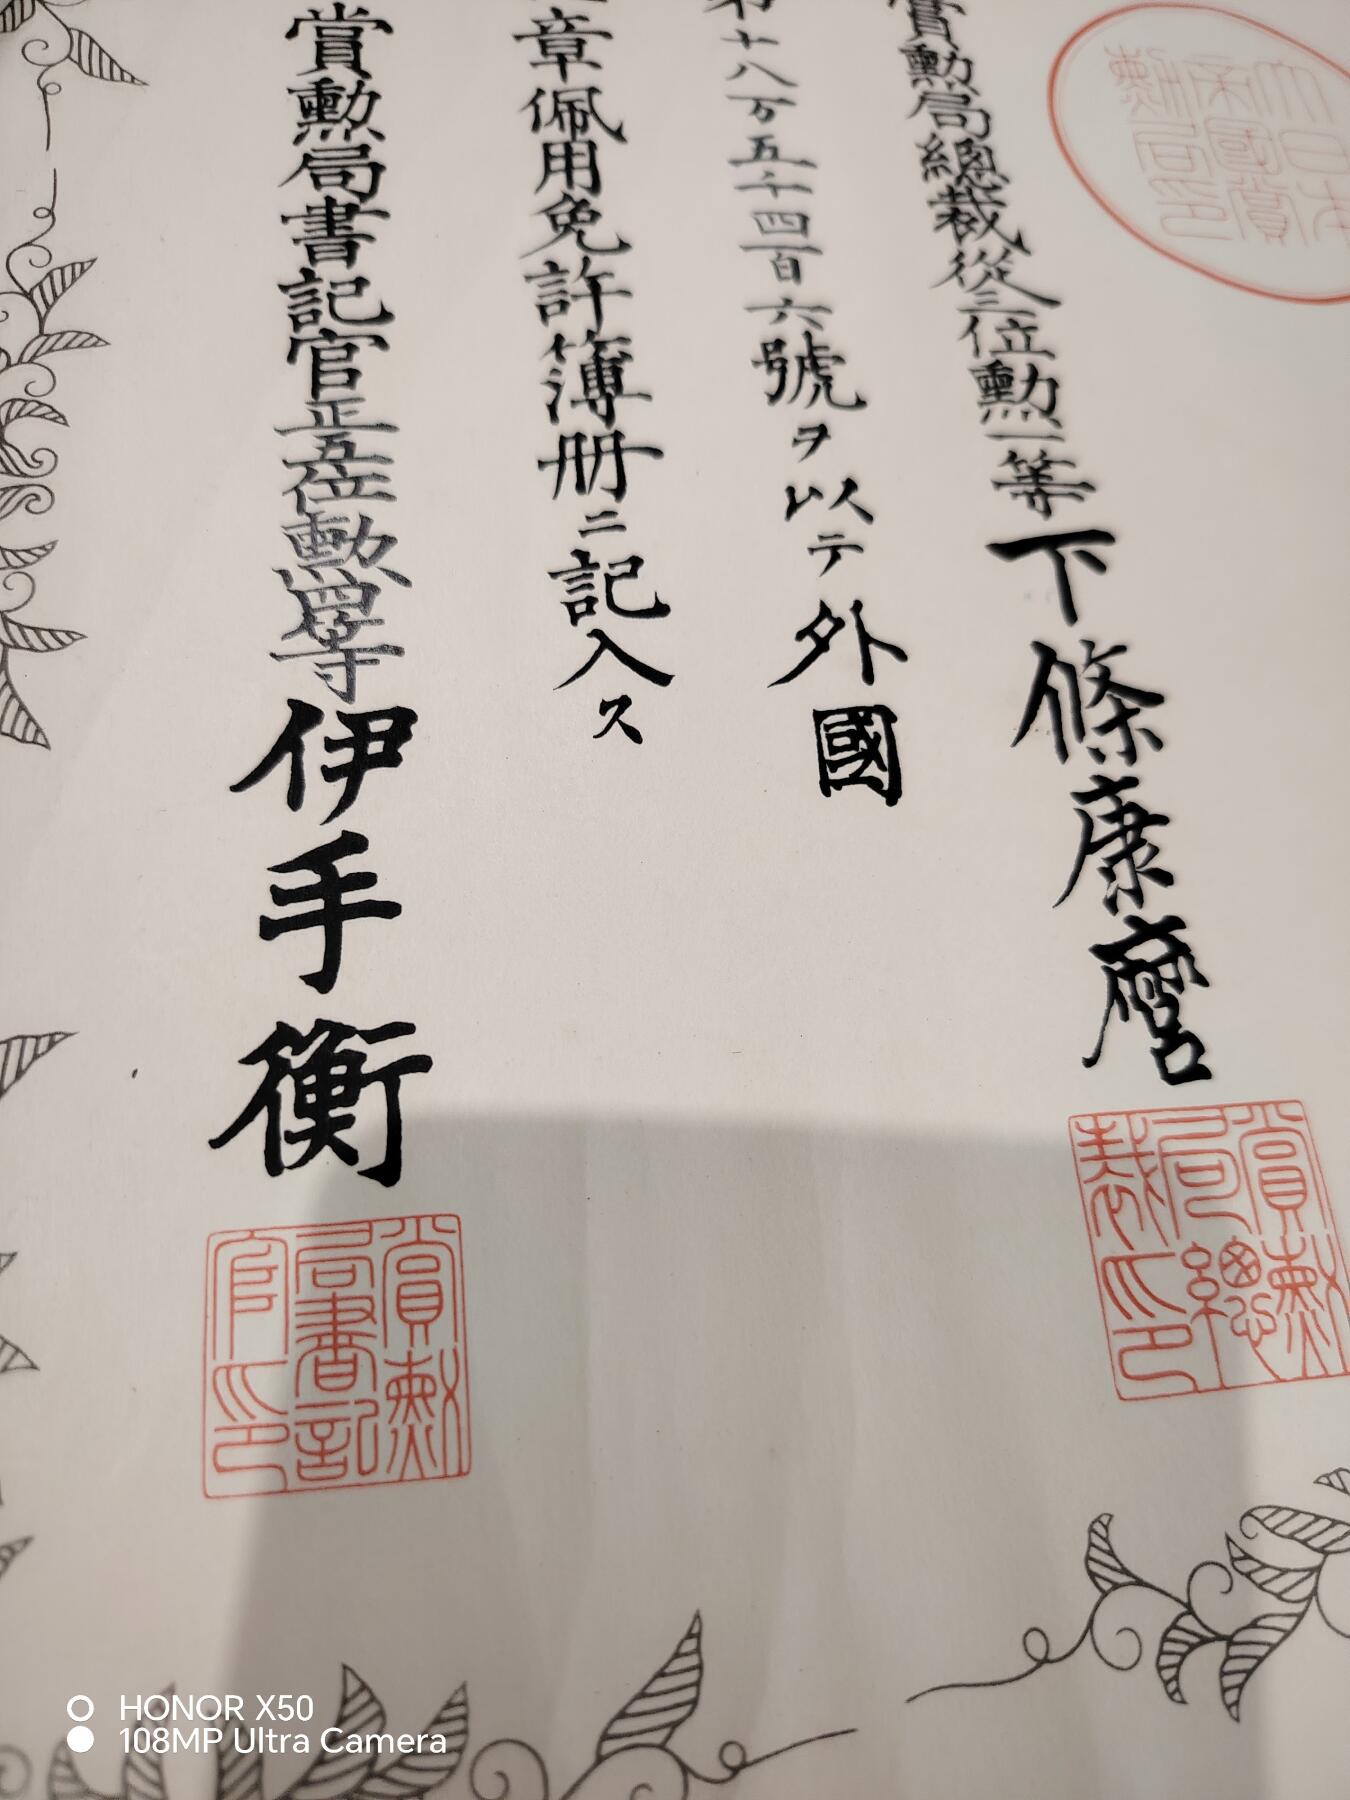 賞勲局總裁從三位勲一等下條康麿
第十八万五千四百六號ヲ以テ外國
章佩用免許簿册ニ記入ス
賞勲局書記官正五位勲四等伊手衡
賞勲局總裁印
賞勲局書記官印
HONOR X50
108MP Ultra Camera